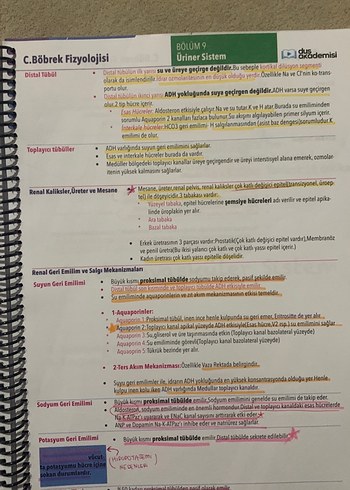 BÖLÜM 9
C.Böbrek Fizyolojisi
Üriner Sistem
dus akademisi
Distal Tübül
Distal tübülün ilk yarısı su ve üreye geçirge değildir.Bu sebeple kortikal dilüsyon segmenti
olarak da isimlendirilir.İdrar ozmolaritesinin en düşük olduğu yerdir.Özellikle Na ve Cl'nin ko-trans-
portu olur.
Distal tübülün ikinci yarısı ADH yokluğunda suya geçirgen değildir.ADH varsa suya geçirgen
olur.2 tip hücre içerir.
Esas Hücreler: Aldosteron etkisiyle çalışır.Na ve su tutar.K ve H atar.Burada su emiliminden
sorumlu Aquaporin 2 kanalları fazlaca bulunur.Su akışını algılayabilen primer silyum içerir.
İnterkale hücreler:HCO3 geri emilimi- H salgılanmasından (asist baz dengesi)sorumludur.K
emilimi de olur.
Toplayıcı tübüller
ADH varlığında suyun geri emilimini sağlarlar.
Esas ve interkale hücreler burada da vardır.
Medüller bölgedeki toplayıcı kanallar üreye geçirgendir ve üreyi interstisyel alana emerek, ozmolar-
itenin yüksek kalmasını sağlarlar.
Renal Kaliksler,Üreter ve Mesane
Mesane, üreter,renal pelvis, renal kaliksler çok katlı değişici epitel(transizyonel, ürоep-
tel) ile döşeyicidir.3 tabakası vardır:
Yüzeyel tabaka, epitel hücrelerine şemsiye hücreleri adı verilir ve epitel apika-
linde üroplakin yer alır.
Ara tabaka
Bazal tabaka
Erkek üretrasının 3 parçası vardır.Prostatik(Çok katlı değişici epitel vardır),Membranöz
ve penil üretra(Bu ikisi yalancı çok katlı ve çok katlı yassı epitel içerir.)
Kadın üretrası çok katlı yassı epitelle döşelidir.
Renal Geri Emilim ve Salgı Mekanizmaları
Suyun Geri Emilimi
Büyük kısmı proksimal tübülde sodyumu takip ederek, pasif şekilde emilir.
Distal tübül son kısmında ve toplayıcı tübülde ADH etkisiyle emilir.
Su emiliminde aquaporinlerin ve zıt akım mekanizmasının etkisi temeldir.
1-Aquaporinler:
Aquaporin 1:Proksimal tübül, inen ince henle kulpunda su geri emer. Eritrositte de yer alır.
Aquaporin 2:Toplayıcı kanal apikal yüzeyde ADH etkisiyle(Esas hücre,V2 rsp.) su emilimini sağlar
Aquaporin 3:Su,gliserol ve üre taşınmasında etkin (Toplayıcı kanal bazolateral yüzey)
Aquaporin 4:Su emiliminde görevli(Toplayıcı kanal bazolateral yüzeyde)
Aquaporin 5:Tükrük bezinde yer alır.
2-Ters Akım Mekanizması:Özellikle Vaza Rektada belirgindir.
Suyu geri emilimiler ile, idrarın ADH yokluğunda en yüksek konsantrasyonda olduğu yer Henle
kulpu inen kolu iken ADH varlığında Medullar toplayıcı kanaldır.
Sodyum Geri Emilimi
Büyük kısmı proksimal tübülde emilir.Sodyum emilimini genelde su emilimi de takip eder.
Aldosteron, sodyum emiliminde en önemli hormondur.Distal ve toplayıcı kanaldaki esas hücrelerde
Na-K ATPaz'ı uyararak ve ENaC kanal sayısını arttırarak etki eder.
ANP ve Dopamin Na-K ATPaz'ı inhibe eder ve natriürez sağlarlar.
Potasyum Geri Emilimi
Büyük kısmı proksimal tübülde emilir.Distal tübülde sekrete edilebilir.
ta potasyumu hücre içine
sokan durumlardır.